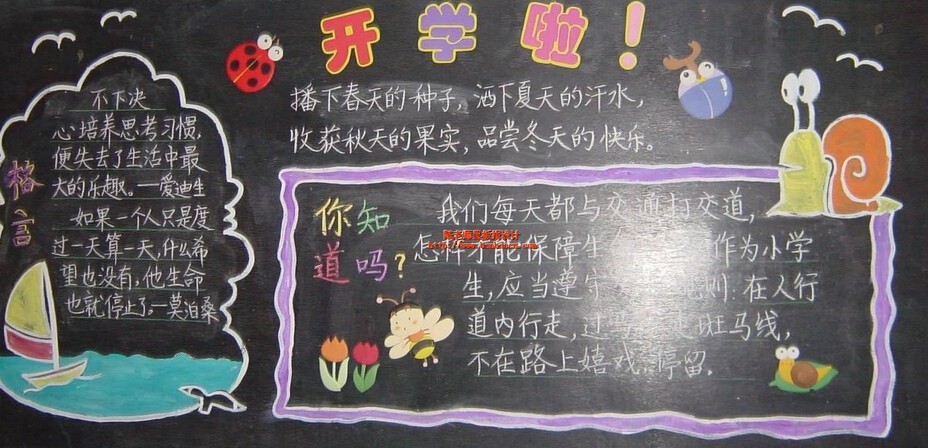 开学啦!
播下春天的种子,洒下夏天的汗水,
收获秋天的果实,品尝冬天的快乐。
格言
不下决
心培养思考习惯,
便失去了生活中最
大的乐趣。—爱迪生
如果一个人只是度
过一天算一天,什么希
望也没有,他生命
也就停止了。—莫泊桑
你知
道吗?
我们每天都与交通打交道,
怎样才能保障生 作为小学
生,应当遵守 规则:在人行
道内行走,过马 斑马线,
不在路上嬉戏、停留.